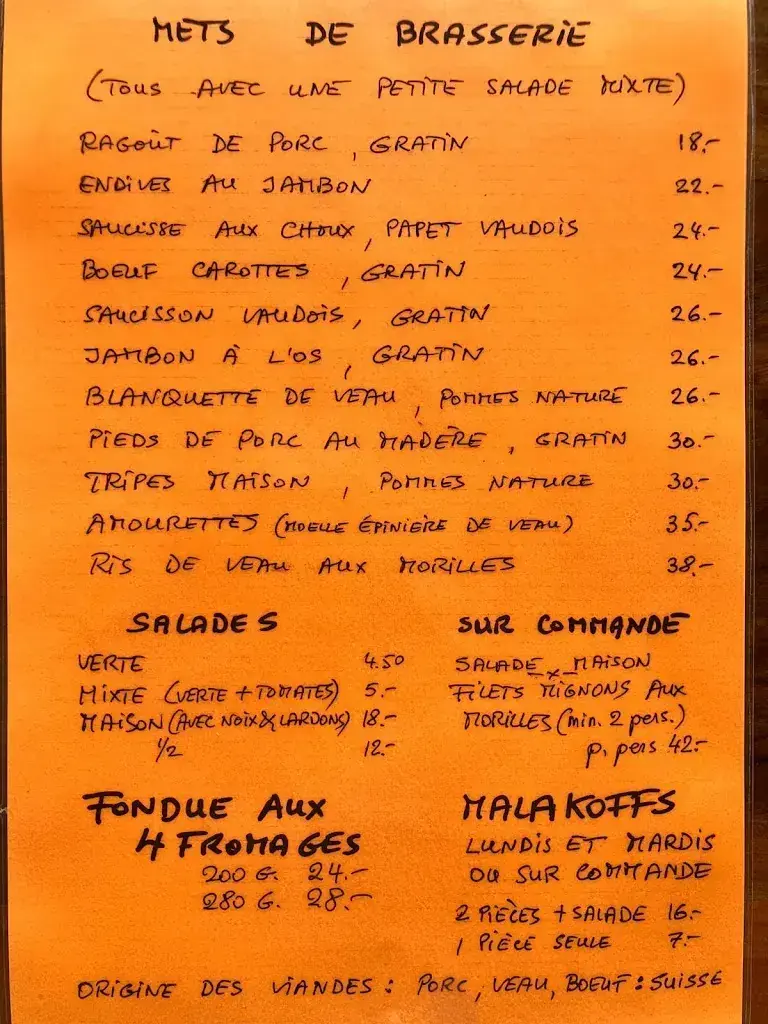 METS DE BRASSERIE
(TOUS AVEC UNE PETITE SALADE MIXTE)
RAGOÛT DE PORC, GRATIN 18.-
ENDIVES AU JAMBON 22.-
SAUCISSE AUX CHOUX, PAPET VAUDOIS 24.-
BOEUF CAROTTES, GRATIN 24.-
SAUCISSON VAUDOIS, GRATIN 26.-
JAMBON À L'OS, GRATIN 26.-
BLANQUETTE DE VEAU, POMMES NATURE 26.-
PIEDS DE PORC AU MADÈRE, GRATIN 30.-
TRIPES MAISON, POMMES NATURE 30.-
AMOURETTES (MOELLE ÉPINIÈRE DE VEAU) 35.-
RIS DE VEAU AUX MORILLES 38.-
SALADES
VERTE 4.50
MIXTE (VERTE + TOMATES) 5.-
MAISON (AVEC NOIX & LARDONS) 18.-
1/2 12.-
SUR COMMANDE
SALADE MAISON
-x-
FILETS MIGNONS AUX
MORILLES (min. 2 pers.)
p. pers 42.-
FONDUE AUX
4 FROMAGES
200 G. 24.-
280 G. 28.-
MALAKOFFS
LUNDIS ET MARDIS
OU SUR COMMANDE
2 PIÈCES + SALADE 16.-
1 PIÈCE SEULE 7.-
ORIGINE DES VIANDES : PORC, VEAU, BOEUF : SUISSE